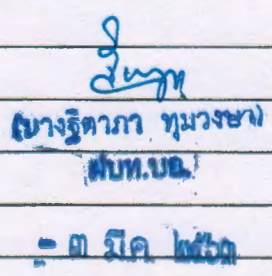 (นางฐิตาภา ทุมวงษา)
ฝบท.บอ.
- ๓ มี.ค. ๒๕๖๓